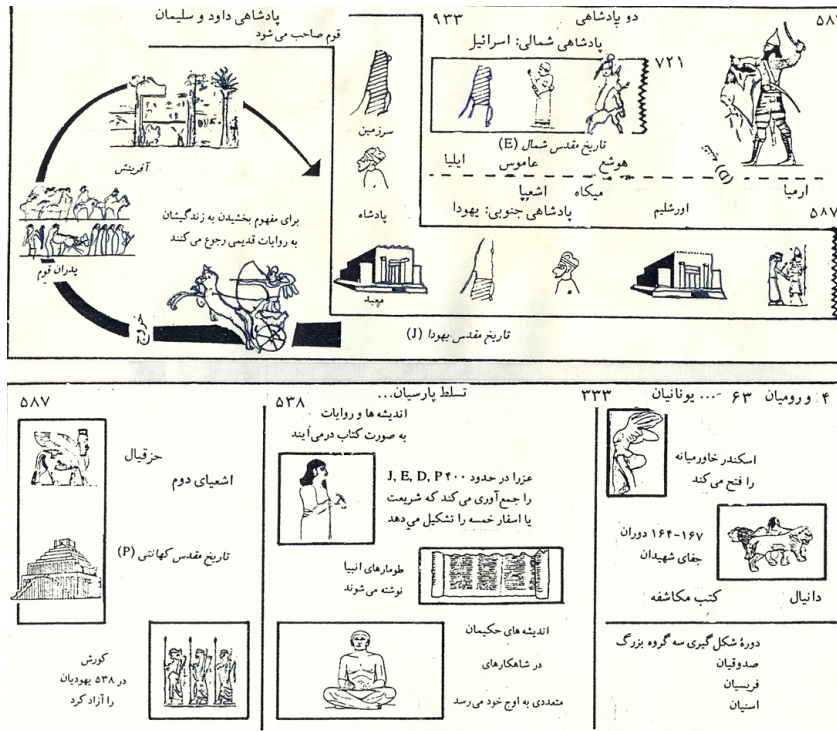 پادشاهی داود و سلیمان
قوم صاحب می‌شود
سرزمین
پادشاه
معبد
آفرینش
پدران قوم
خروج
برای مفهوم بخشیدن به زندگیشان
به روایات قدیمی رجوع می‌کنند
تاریخ مقدس یهودا (J)
۹۳۳
دو پادشاهی
پادشاهی شمالی: اسرائیل
۷۲۱
تاریخ مقدس شمال (E)
ایلیا
عاموس
هوشع
(D)
میکاه
اشعیا
ارمیا
پادشاهی جنوبی: یهودا
اورشلیم
۵۸۷
۵۸۷
حزقیال
اشعیای دوم
تاریخ مقدس کهانتی (P)
کورش
در ۵۳۸ یهودیان
را آزاد کرد
۵۳۸
تسلط پارسیان...
اندیشه ها و روایات
به صورت کتاب درمی‌آیند
عزرا در حدود ۴۰۰ J, E, D, P
را جمع‌آوری می‌کند که شریعت
یا اسفار خمسه را تشکیل می‌دهد
طومارهای انبیا
نوشته می‌شوند
اندیشه های حکیمان
در شاهکارهای
متعددی به اوج خود می‌رسد
۳۳۳
... یونانیان
۶۳
و رومیان
۴
اسکندر خاورمیانه
را فتح می‌کند
۱۶۷-۱۶۴ دوران
جفای شهیدان
دانیال
کتب مکاشفه
دورهٔ شکل گیری سه گروه بزرگ
صدوقیان
فریسیان
اسنیان